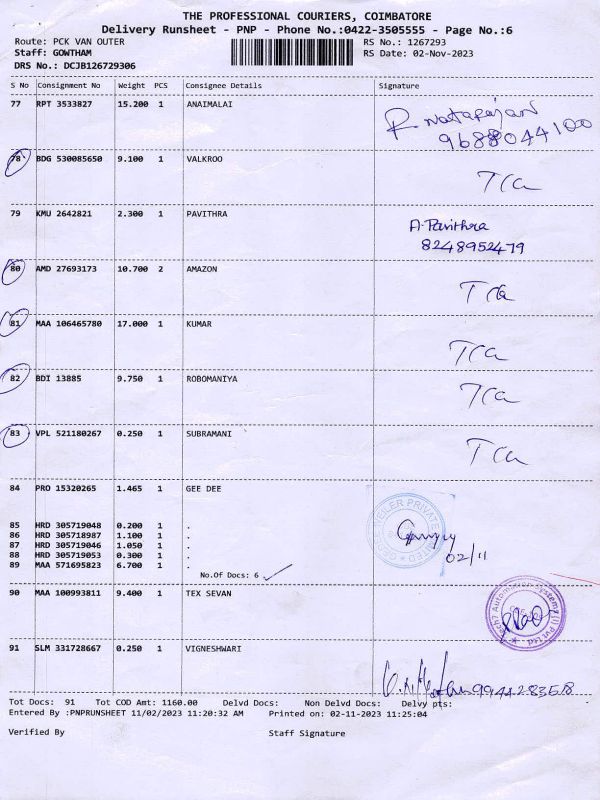 THE PROFESSIONAL COURIERS, COIMBATORE
Delivery Runsheet - PNP - Phone No.:0422-3505555 - Page No.:6
Route: PCK VAN OUTER RS No.: 1267293
Staff: GOWTHAM RS Date: 02-Nov-2023
DRS No.: DCJB126729306
S No Consignment No Weight PCS Consignee Details Signature
77 RPT 3533827 15.200 1 ANAIMALAI R. Natarajan
9688044100
78 BDG 530085650 9.100 1 VALKROO
79 KMU 2642821 2.300 1 PAVITHRA A. Pavithra
8248952479
80 AMD 27693173 10.700 2 AMAZON
81 MAA 106465780 17.000 1 KUMAR
82 BDI 13885 9.750 1 ROBOMANIYA
83 VPL 521180267 0.250 1 SUBRAMANI
84 PRO 15320265 1.465 1 GEE DEE
85 HRD 305719048 0.200 1 .
86 HRD 305718987 1.100 1 .
87 HRD 305719046 1.050 1 .
88 HRD 305719053 0.300 1 .
89 MAA 571695823 6.700 1 .
02/11
No.Of Docs: 6
90 MAA 100993811 9.400 1 TEX SEVAN
91 SLM 331728667 0.250 1 VIGNESHWARI
Tot Docs: 91 Tot COD Amt: 1160.00 Delvd Docs: Non Delvd Docs: Delvy pts:
Entered By :PNPRUNSHEET 11/02/2023 11:20:32 AM Printed on: 02-11-2023 11:25:04
Verified By Staff Signature